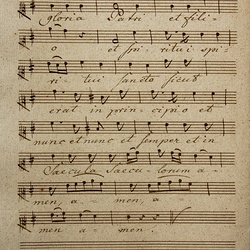 gloria Patri et fili-
o et spi- ritui spi-
ri- tui sancto sicut
erat in prin- cipio et
nunc et nunc et semper et in
Saecula Saecu- lorum a-
men, a- men, a-
men a- men.